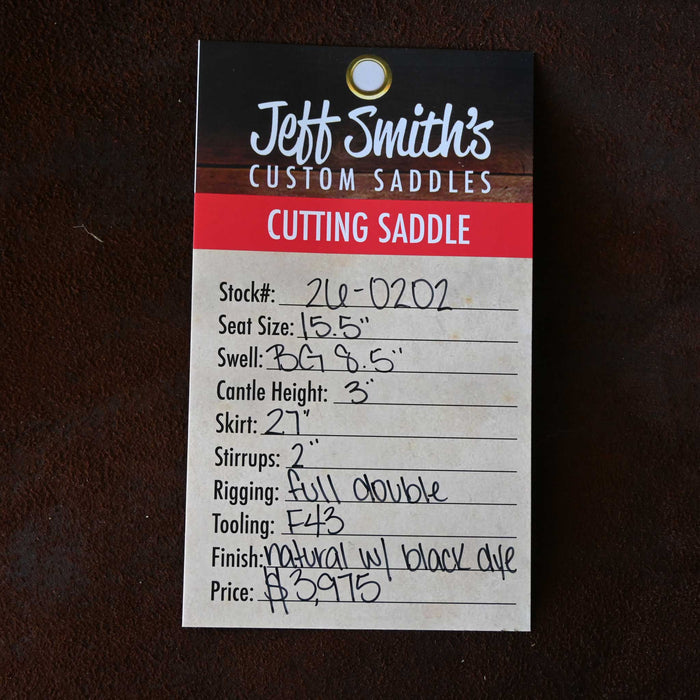 Jeff Smith's
CUSTOM SADDLES
CUTTING SADDLE
Stock#: 26-0202
Seat Size: 15.5"
Swell: BG 8.5"
Cantle Height: 3"
Skirt: 27"
Stirrups: 2"
Rigging: full double
Tooling: F43
Finish: natural w/ black dye
Price: $3,975